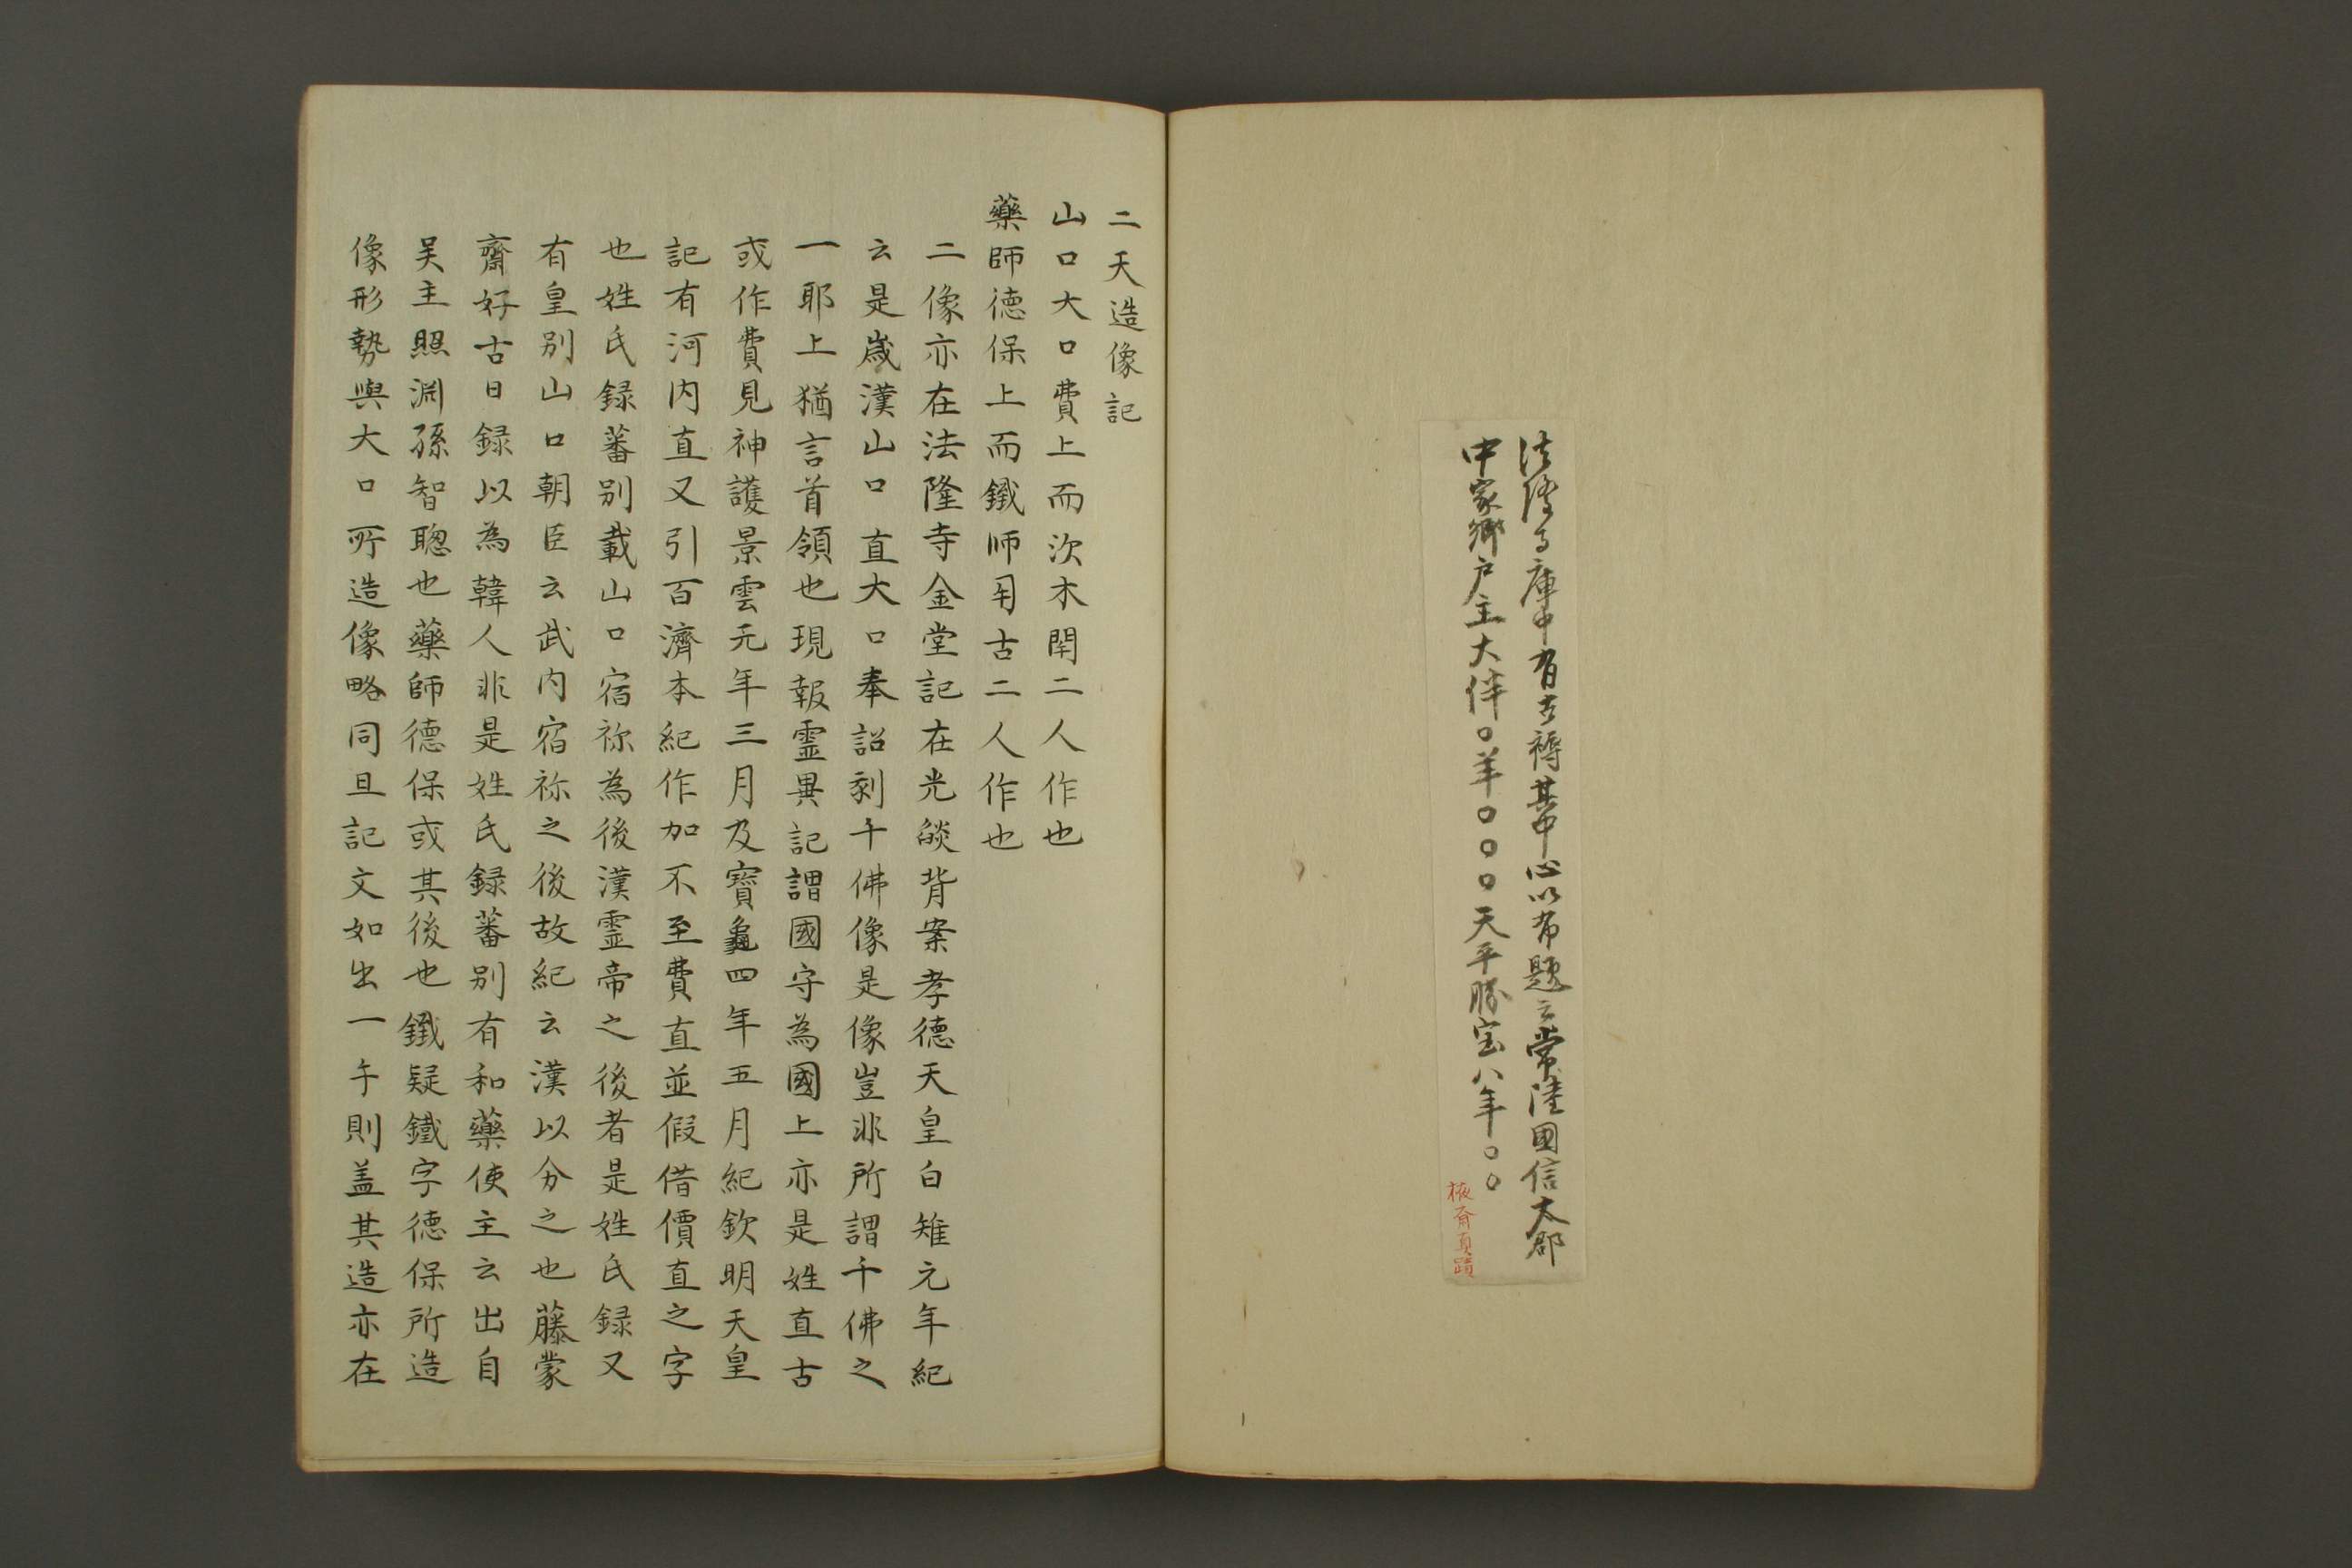 法隆寺庫中有古褥其中心以布題云常陸國信太郡
中家郷戸主大伴〇羊〇〇〇天平勝宝八年〇〇
棭斎真蹟
二天造像記
山口大口費上而次木閇二人作也
藥師德保上而鐵师𤰃古二人作也
二像亦在法隆寺金堂記在光燄背案孝德天皇白雉元年紀
云是歲漢山口直大口奉詔刻千佛像是像豈非所謂千佛之
一耶上猶言首領也現報霊異記謂國守為國上亦是姓直古
或作費見神護景雲元年三月及寶龜四年五月紀欽明天皇
記有河内直又引百濟本紀作加不至費直並假借價直之字
也姓氏録蕃别載山口宿祢為後漢霊帝之後者是姓氏録又
有皇别山口朝臣云武内宿祢之後故紀云漢以分之也藤蒙
齋好古日録以為韓人非是姓氏録蕃别有和藥使主云出自
吴主照渊孫智聰也藥師德保或其後也鐵疑鐵字德保所造
像形勢與大口所造像略同且記文如出一手則盖其造亦在